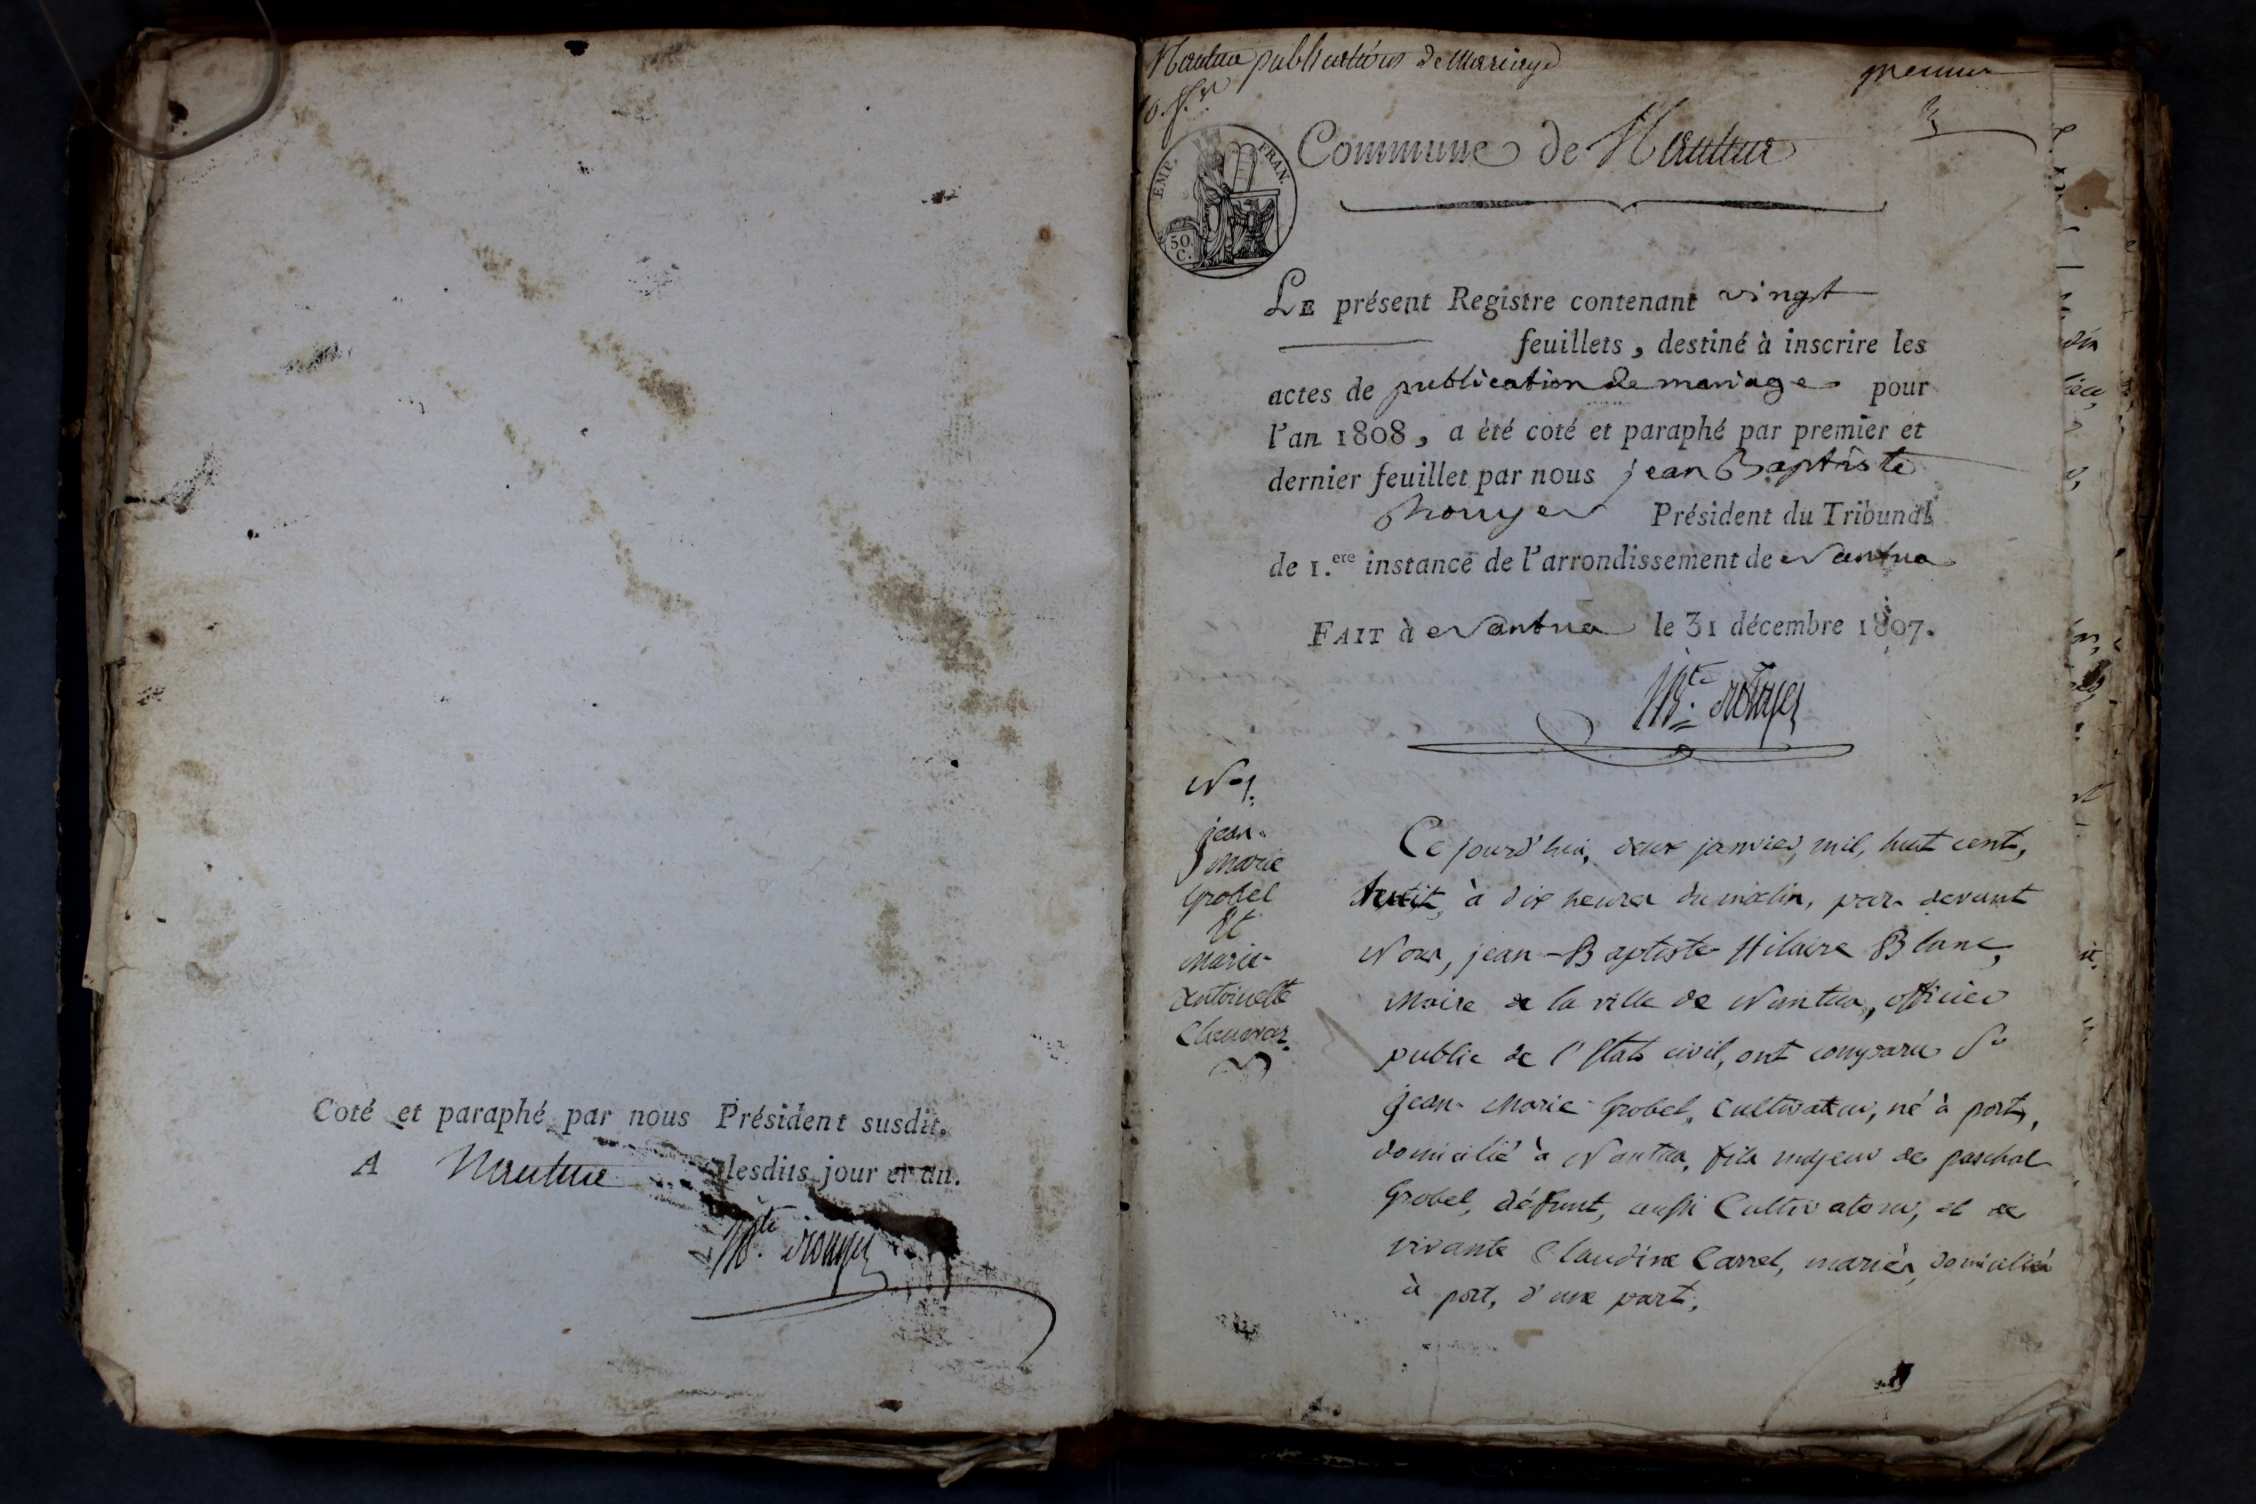 Coté et paraphé par nous Président susdit.
A Nantua lesdits jour et an.
JB.te Rouyer
Nantua publications de Mariage
premier
Commune de Nantua
EMP. FRAN.
50 C.
LE présent Registre contenant vingt
feuillets, destiné à inscrire les
actes de publication de mariage pour
l'an 1808, a été coté et paraphé par premier et
dernier feuillet par nous jean Baptiste
Rouyer Président du Tribunal
de 1.ere instance de l'arrondissement de Nantua
FAIT à Nantua le 31 décembre 1807.
JB.te Rouyer
N° 1.
jean-
Marie
Grobel
Et
Marie-
Antoinette
Chenevar
Ce jourd'hui, deux janvier, mil, huit cent,
huit, à dix heures du matin, par devant
Nous, jean-Baptiste Hilaire Blanc,
Maire de la ville de Nantua, officier
public de l'Etat civil, ont comparu Sr
jean-Marie Grobel, Cultivateur, né à port,
domicilié à Nantua, fils majeur de paschal
Grobel, défunt, aussi Cultivateur, et de
vivante Claudine Carrel, mariés, domiciliés
à port, d'une part,